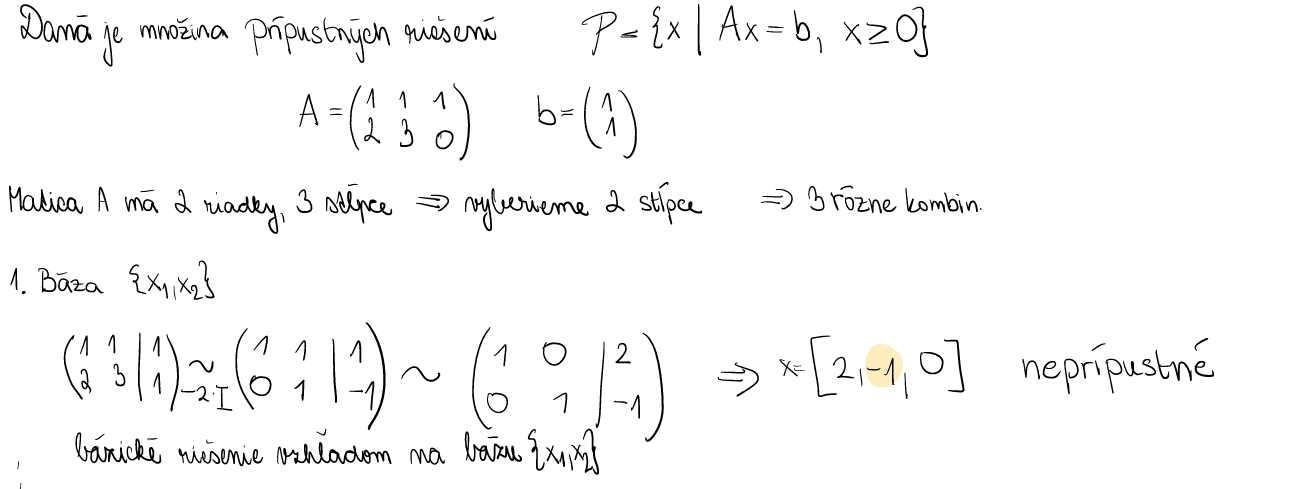 Daná je množina prípustných riešení P = {x | Ax = b, x ≥ 0}
A = (1 1 1; 2 3 0) b = (1; 1)
Matica A má 2 riadky, 3 stĺpce ⇒ vyberieme 2 stĺpce ⇒ 3 rôzne kombin.
1. Báza {x₁, x₂}
(1 1 | 1; 2 3 | 1) ~ -2·I (1 1 | 1; 0 1 | -1) ~ (1 0 | 2; 0 1 | -1) ⇒ x = [2, -1, 0] neprípustné
bázické riešenie vzhľadom na bázu {x₁, x₂}